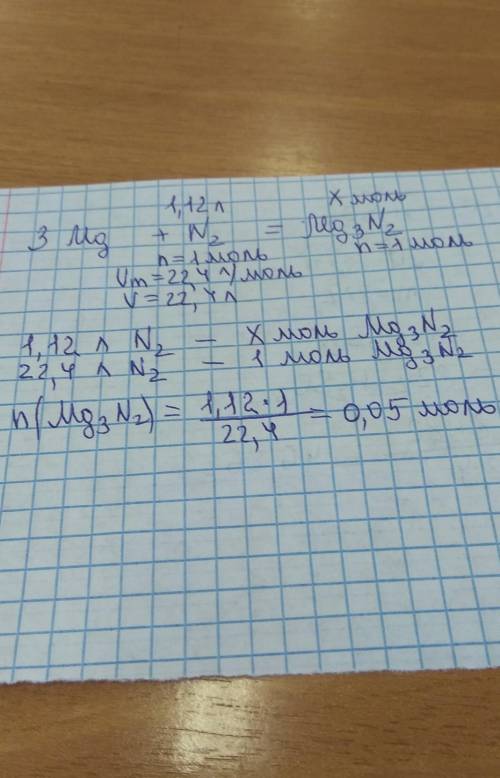 1,12 л X моль
3 Mg + N₂ = Mg₃N₂
n = 1 моль n = 1 моль
Vm = 22,4 л/моль
V = 22,4 л
1,12 л N₂ – X моль Mg₃N₂
22,4 л N₂ – 1 моль Mg₃N₂
n(Mg₃N₂) = 1,12·1 / 22,4 = 0,05 моль